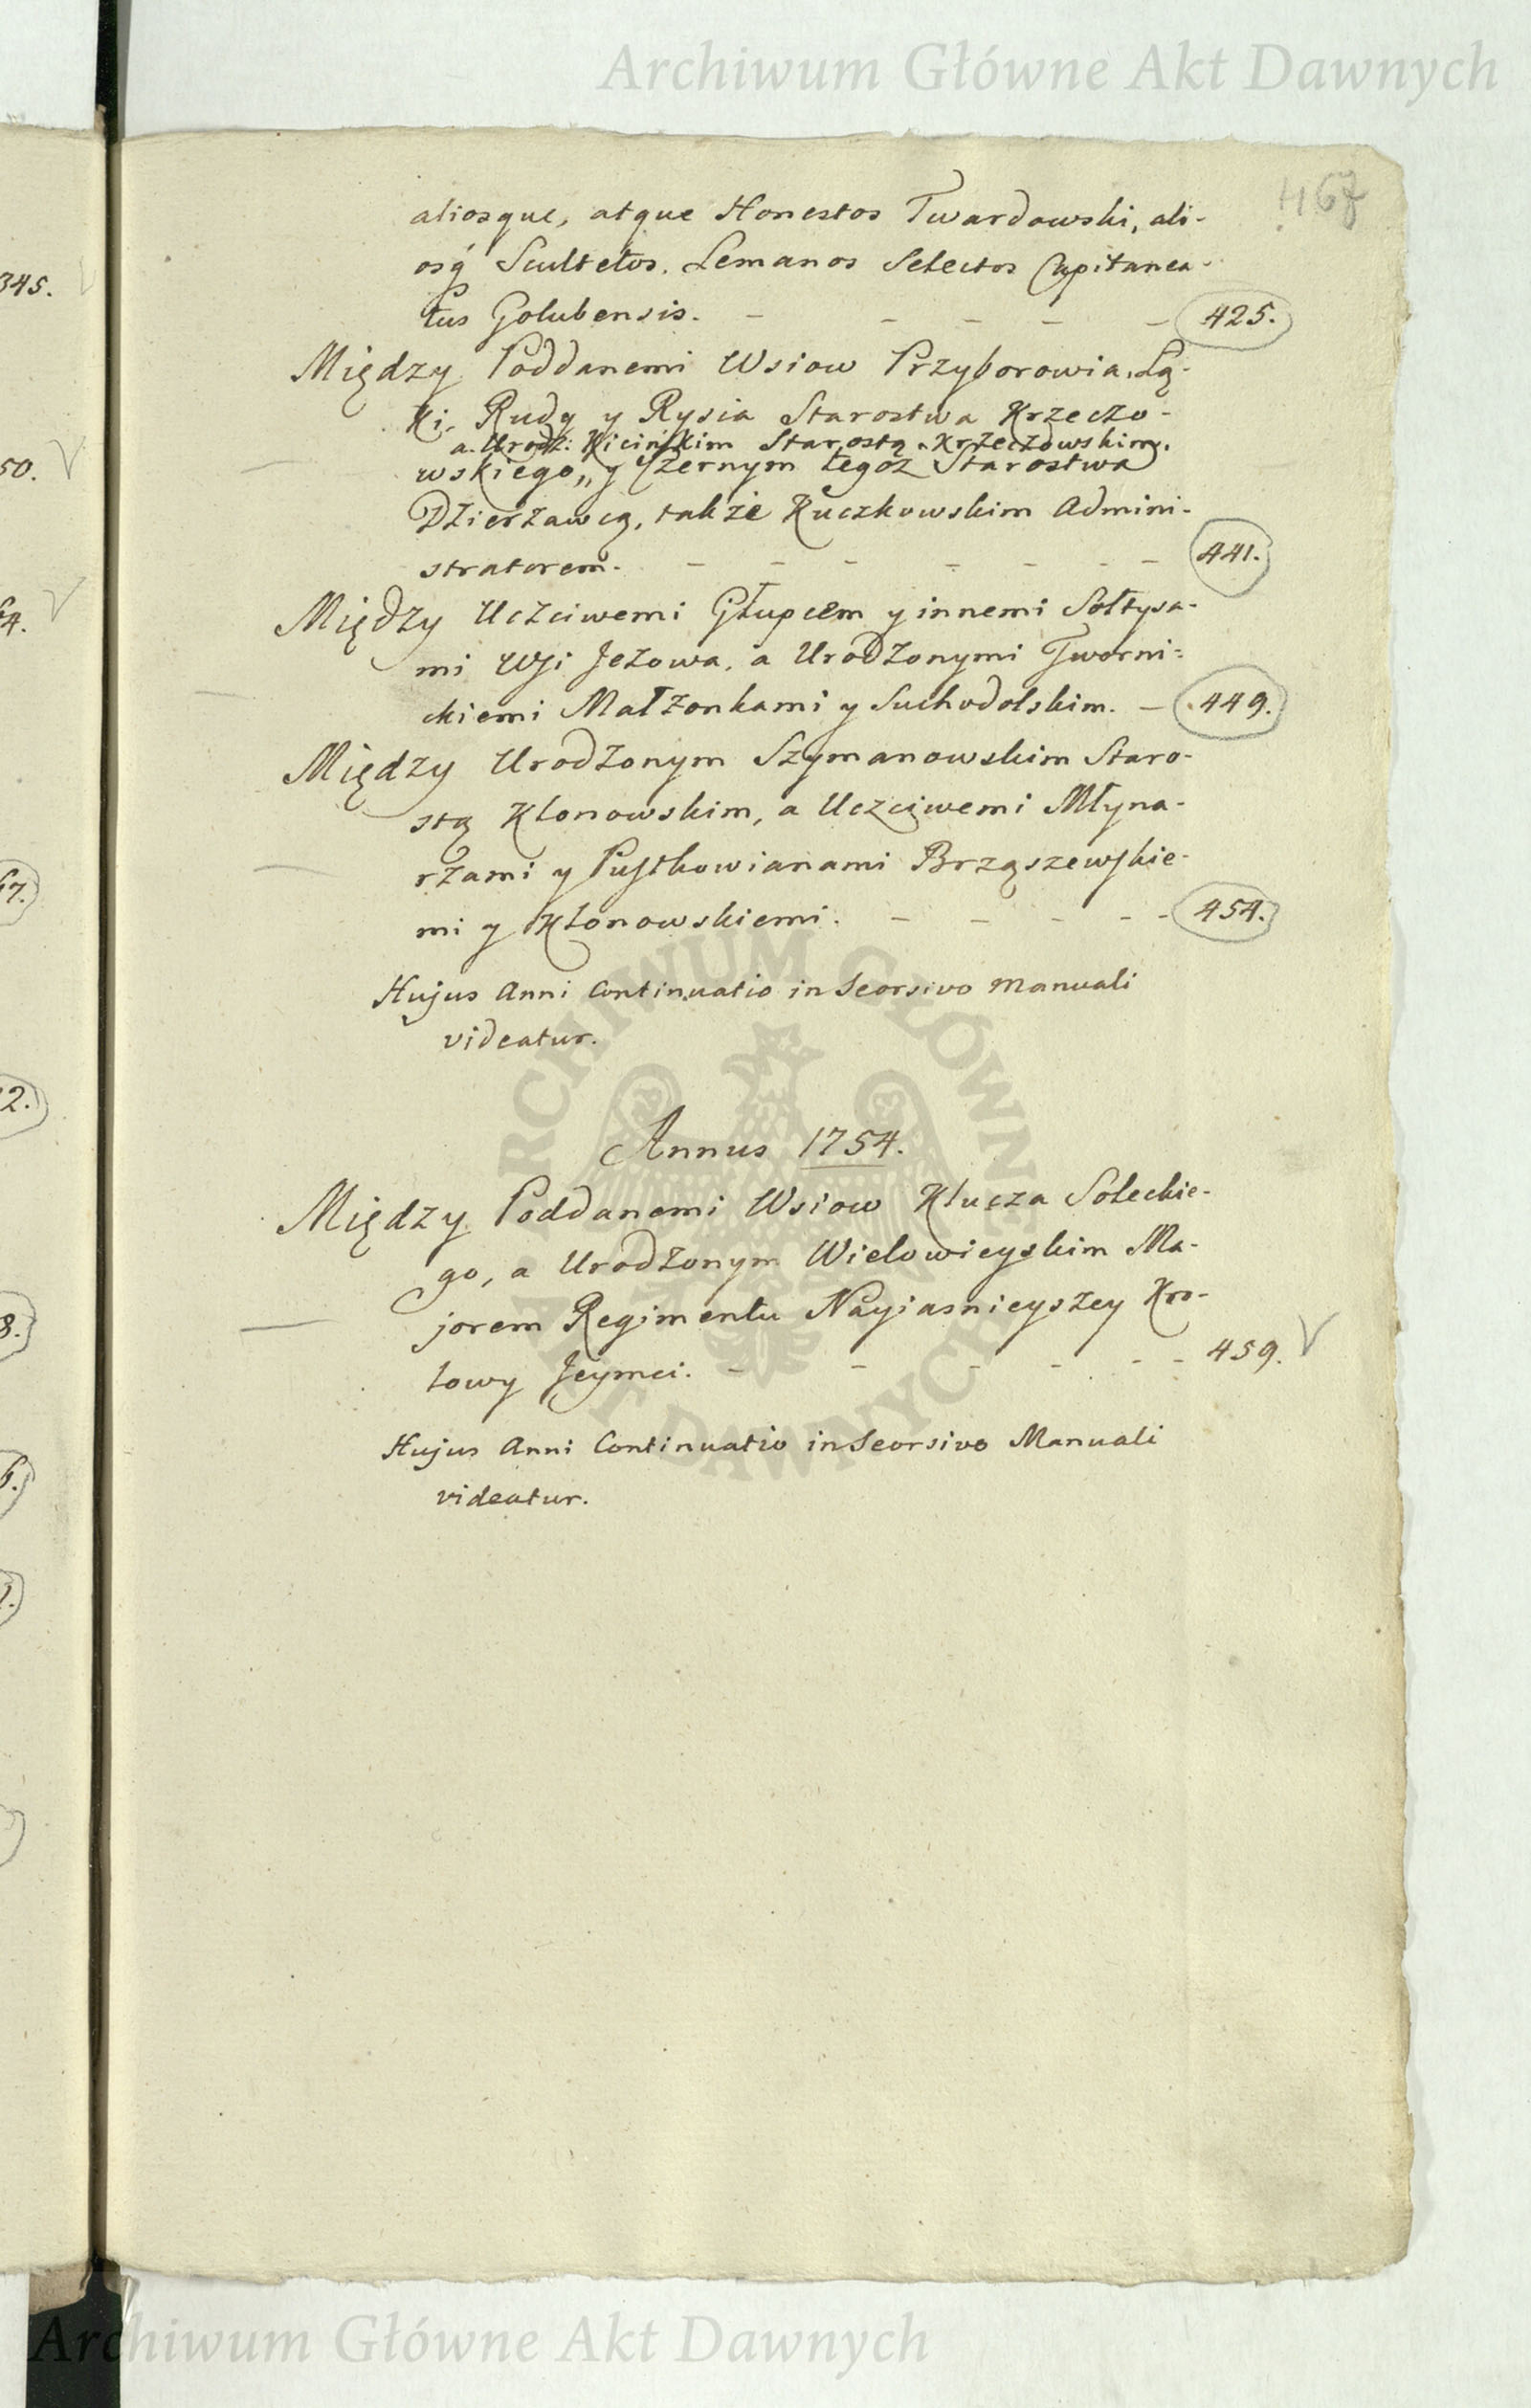 Archiwum Główne Akt Dawnych
467
aliosque, atque Honestos Twardowski, ali-
osq́ Scultetos, Lemanos Selectos Capitanea-
tus Golubensis. - - - - - 425.
Między Poddanemi Wsiow Przyborowia, Lą-
ki, Rudy y Rysia Starostwa Krzeczo-
a. Urodz: Kicinskim Starostą Krzeczowskim,
wskiego,, y Czernym tegoż Starostwa
Dzierżawcą, także Kuczkowskim Admini-
stratorem. - - - - - - - 441.
Między Uczciwemi Głupcem y innemi Sołtysa-
mi Wsi Jeżowa, a Urodzonymi Tworni-
ckiemi Małżonkami y Suchodolskim. - 449.
Między Urodzonym Szymanowskim Staro-
stą Klonowskim, a Uczciwemi Młyna-
rzami y Pustkowianami Brząszewskie-
mi y Klonowskiemi. - - - - - 454.
Hujus Anni Continuatio in Seorsivo Manuali
videatur.
Annus 1754.
Między Poddanemi Wsiow Klucza Soleckie-
go, a Urodzonym Wielowieyskim Ma-
jorem Regimentu Nayiasnieyszey Kro-
lowy Jeymci. - - - - - - 459.
Hujus Anni Continuatio in Seorsivo Manuali
videatur.
345.
50.
64.
67.
2.
8.
6.
ARCHIWUM GŁÓWNE AKT DAWNYCH
Archiwum Główne Akt Dawnych